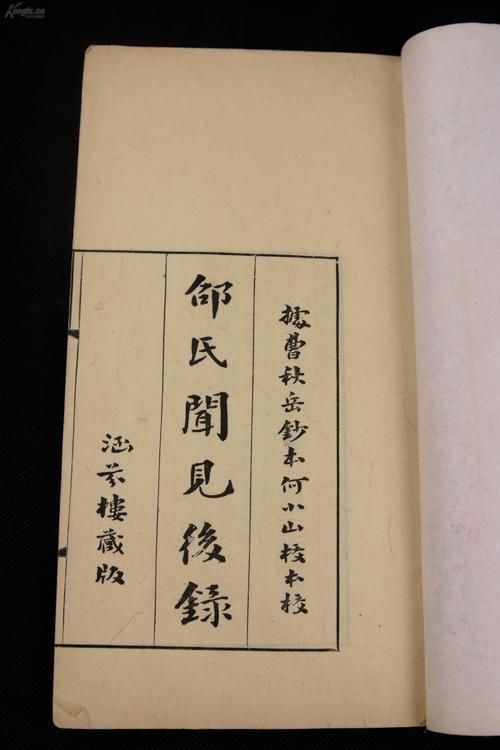 據曹秋岳鈔本何小山校本校
邵氏聞見後錄
涵芬樓藏版
Kongfz.cn